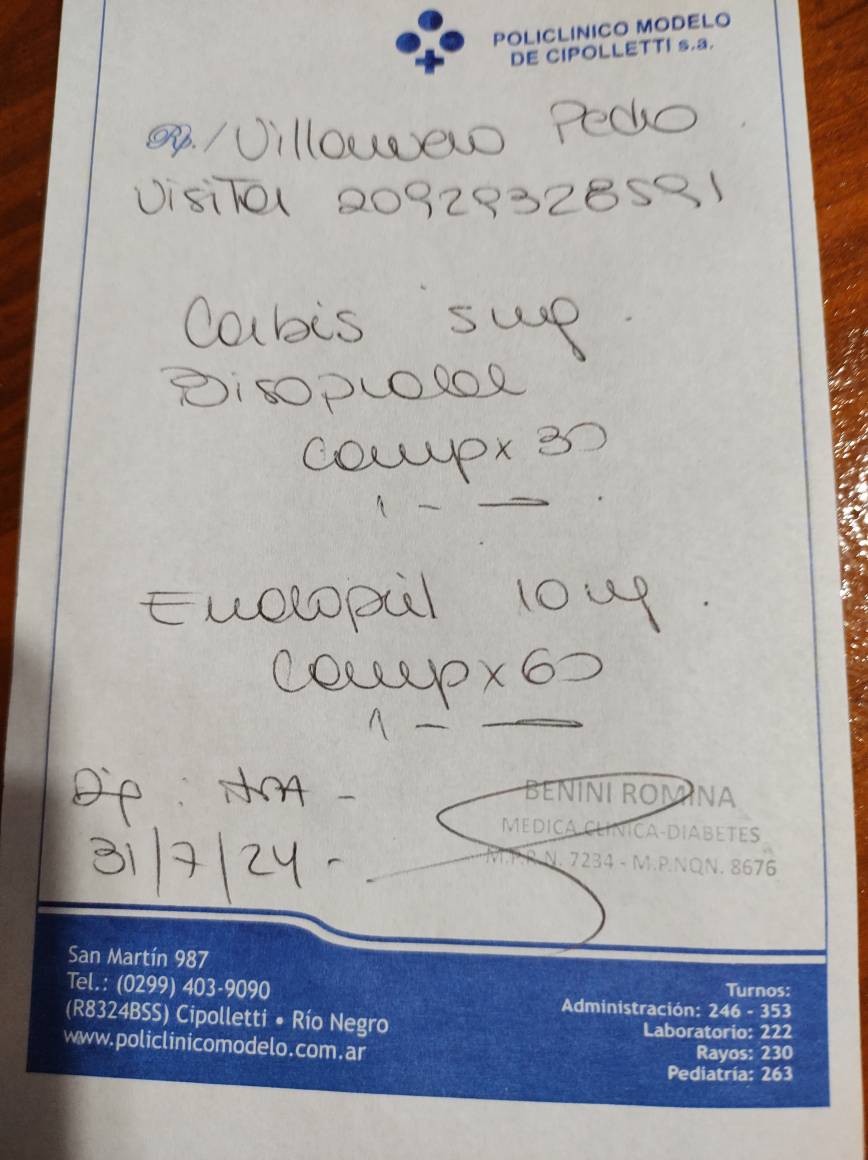 POLICLINICO MODELO
DE CIPOLLETTI s.a.
Rp./ Pedro
Visitar 20929328591
Corbis 5 mg.
Bisoprolol
comp x 30
1 -
Enalapril 10 mg.
comp x 60
1 -
Dip: HTA -
31/7/24 -
BENINI ROMINA
MEDICA CLINICA-DIABETES
M.P.R.N. 7234 - M.P.NQN. 8676
San Martín 987
Tel.: (0299) 403-9090
(R8324BSS) Cipolletti • Río Negro
www.policlinicomodelo.com.ar
Turnos:
Administración: 246 - 353
Laboratorio: 222
Rayos: 230
Pediatría: 263